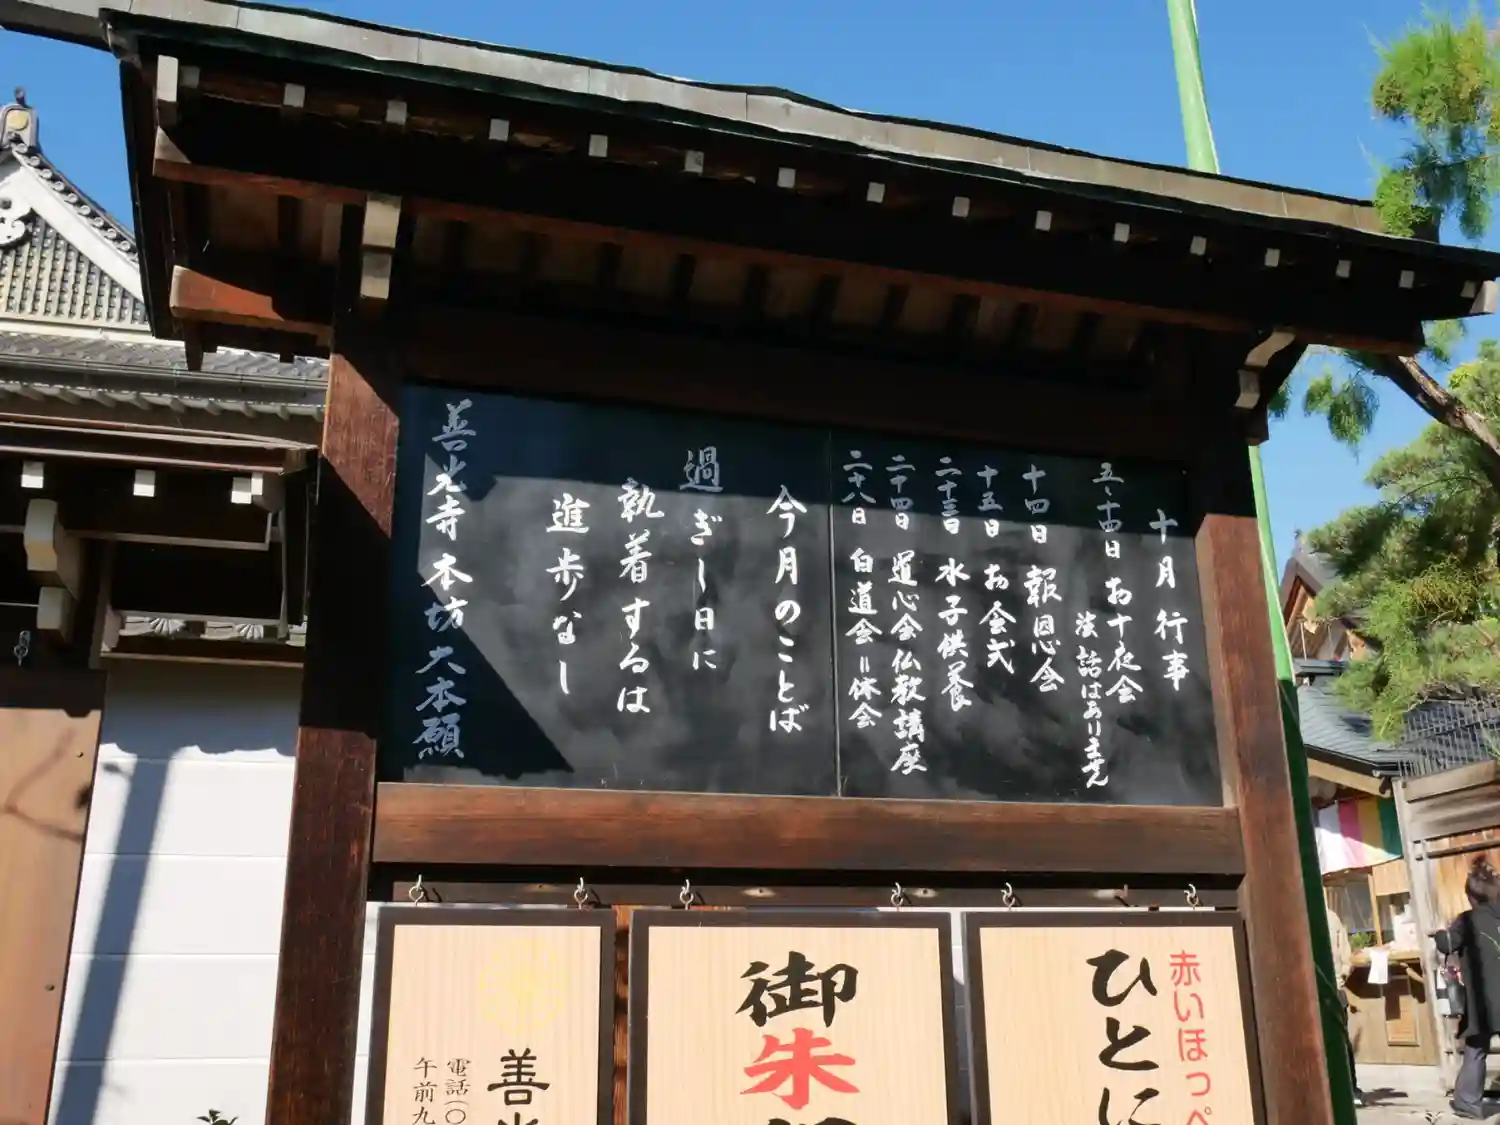 十月行事
五、十四日 お十夜会
法話はありません
十四日 報恩会
十五日 お会式
二十三日 水子供養
二十四日 道心会 仏教講座
二十八日 白道会＝休会
今月のことば
過ぎし日に
執着するは
進歩なし
善光寺本坊大本願
赤いほっぺ
ひとに
御朱
善光
電話(〇
午前九